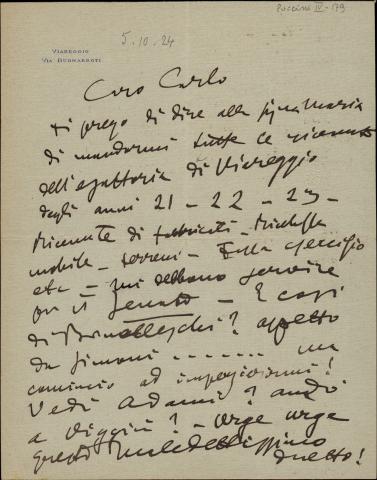 Puccini IV - 179
5.10.24
VIAREGGIO
VIA BUONARROTI
Caro Carlo
ti prego di dire alla Sig.na Maria
di mandarmi tutte le ricevute
dell'esattoria di Viareggio
degli anni 21 - 22 - 23 -
Ricevute di fabbricati - ricchezza
mobile - terreni - tassa esercizio
etc - mi debbono servire
per il Senato - E così
di Brunelleschi? aspetto
da Simoni ...... ma
comincio ad impazientirmi!
Vedi Adami? andò
a Viggiù? - urge urge
questo maledettissimo
duetto!